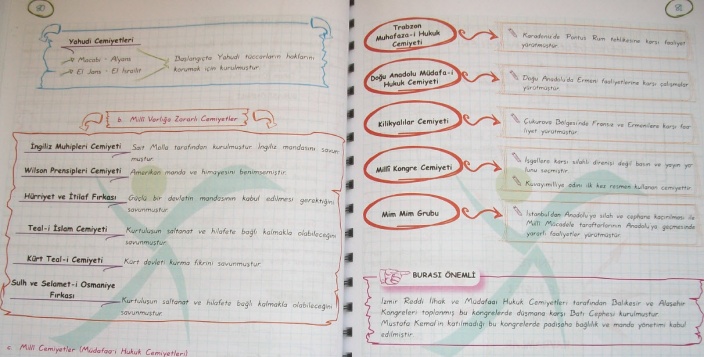 Yahudi Cemiyetleri
Macabi - Alyans
El Jans - El Israilit
Başlangıçta Yahudi tüccarların haklarını
korumak için kurulmuştur.
b. Milli Varlığa Zararlı Cemiyetler
İngiliz Muhipleri Cemiyeti Sait Molla tarafından kurulmuştur. İngiliz mandasını savun
muştur.
Wilson Prensipleri Cemiyeti Amerikan manda ve himayesini benimsemiştir.
Hürriyet ve İtilaf Fırkası Güçlü bir devletin mandasının kabul edilmesi gerektiğini
savunmuştur.
Teal-i İslam Cemiyeti Kurtuluşun saltanat ve hilafete bağlı kalmakla olabileceğini
savunmuştur.
Kürt Teal-i Cemiyeti Kürt devleti kurma fikrini savunmuştur.
Sulh ve Selamet-i Osmaniye
Fırkası
Kurtuluşun saltanat ve hilafete bağlı kalmakla olabileceğini
savunmuştur
c. Milli Cemiyetler (Müdafaa-i Hukuk Cemiyetleri)
Trabzon
Muhafaza-i Hukuk
Cemiyeti
Karadeniz'de Pontus Rum tehlikesine karşı faaliyet
yürütmüştür.
Doğu Anadolu Müdafa-i
Hukuk Cemiyeti
Doğu Anadolu'da Ermeni faaliyetlerine karşı çalışmalar
yürütmüştür.
Kilikyalılar Cemiyeti
Çukurova Bölgesinde Fransız ve Ermenilere karşı faa
liyet yürütmüştür.
Milli Kongre Cemiyeti
İşgallere karşı silahlı direnişi değil basın ve yayın yo
lunu seçmiştir.
Kuvayımilliye adını ilk kez resmen kullanan cemiyettir.
Mim Mim Grubu
İstanbul'dan Anadolu'ya silah ve cephane kaçırılması ile
Milli Mücadele taraftarlarının Anadolu'ya geçmesinde
yararlı faaliyetler yürütmüştür.
BURASI ÖNEMLİ
İzmir Reddi İlhak ve Müdafaai Hukuk Cemiyetleri tarafından Balıkesir ve Alaşehir
Kongreleri toplanmış bu kongrelerde düşmana karşı Batı Cephesi kurulmuştur.
Mustafa Kemal'in katılmadığı bu kongrelerde padişaha bağlılık ve manda yönetimi kabul
edilmiştir.